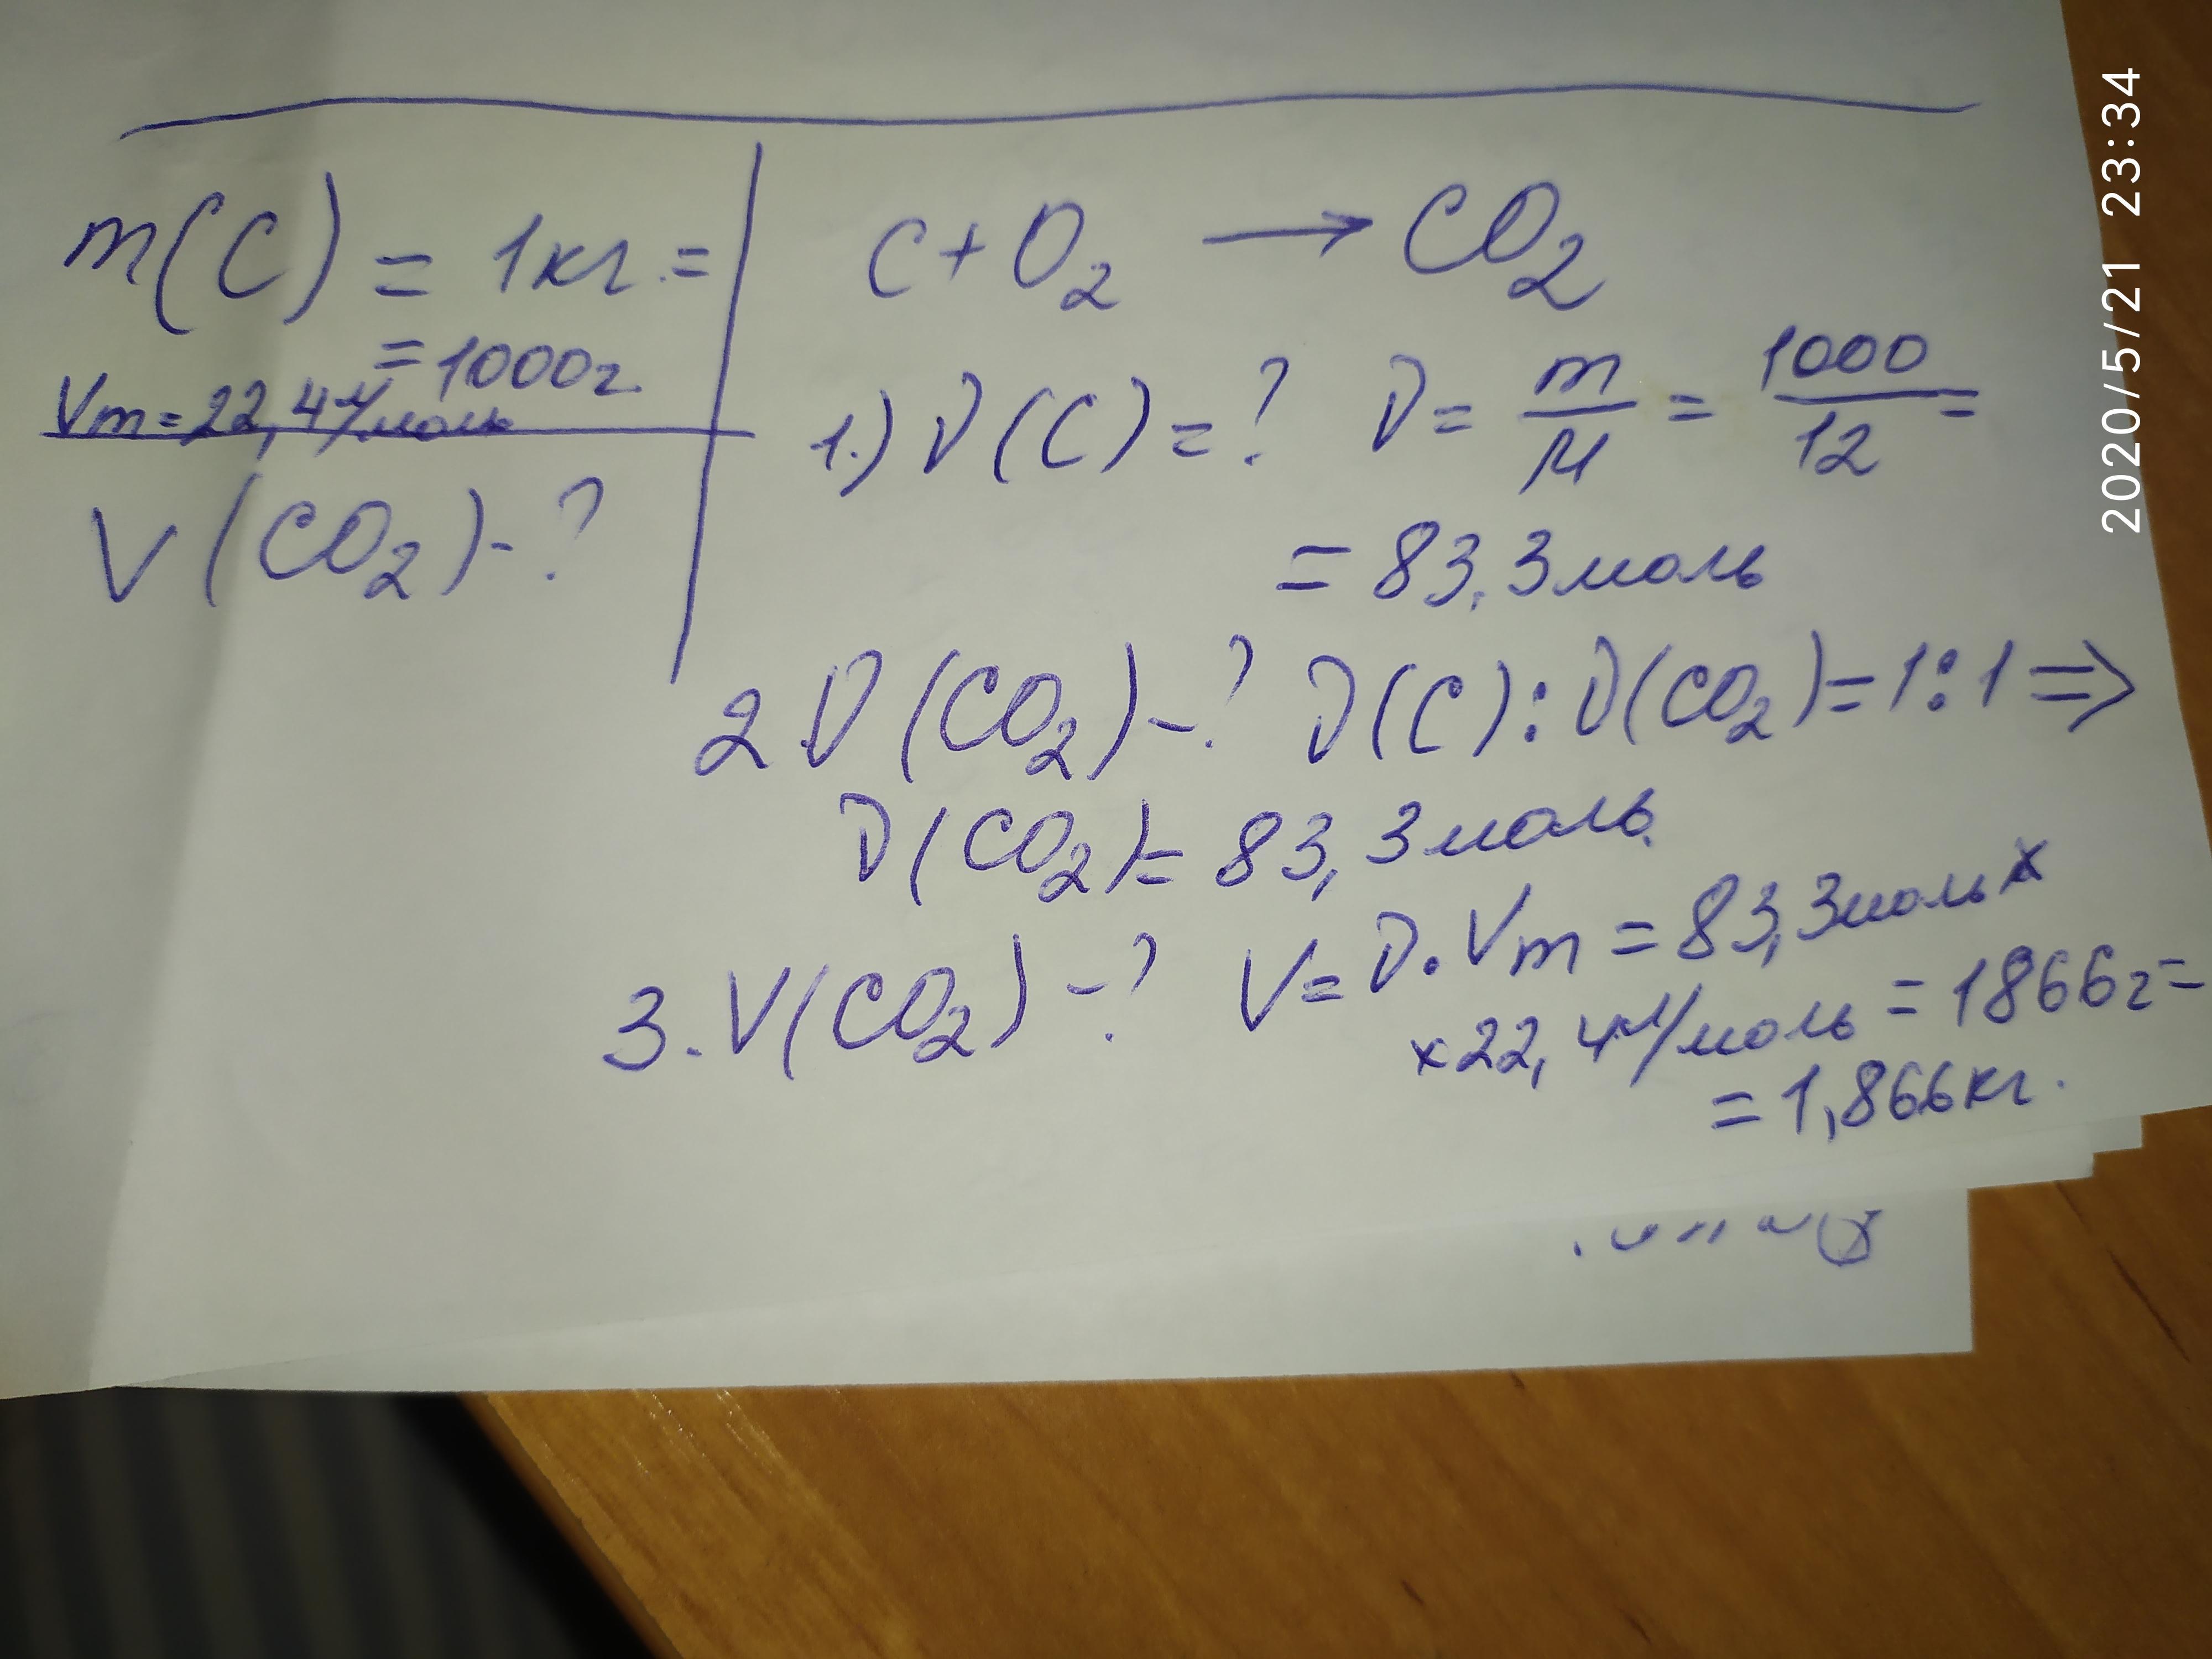 m(C) = 1кг. =
= 1000г
Vm = 22,4 л/моль
V(CO₂) - ?
C + O₂ → CO₂
1.) ν(C) = ? ν = m/M = 1000/12 =
= 83,3 моль
2 ν(CO₂) - ? ν(C) : ν(CO₂) = 1 : 1 ⇒
ν(CO₂) = 83,3 моль.
3. V(CO₂) - ? V = ν · Vm = 83,3 моль x
x 22,4 л/моль = 1866г =
= 1,866 кг.
2020/5/21 23:34